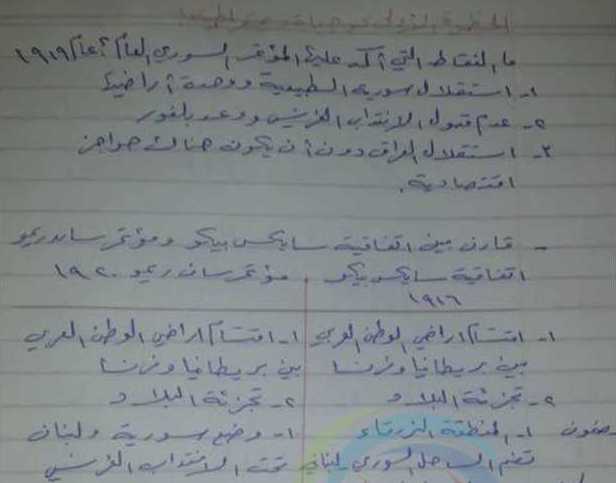 ما النقاط التي أكد عليها المؤتمر السوري العام عام ١٩١٩
١- استقلال سورية الطبيعية ووحدة أراضيها
٢- عدم قبول الانتداب الفرنسي ووعد بلفور
٣- استقلال العراق دون أن يكون هناك حواجز
اقتصادية.
- قارن بين اتفاقية سايكس بيكو ومؤتمر سان ريمو
اتفاقية سايكس بيكو مؤتمر سان ريمو ١٩٢٠
١٩١٦
١- اقتسام أراضي الوطن العربي ١- اقتسام أراضي الوطن العربي
بين بريطانيا وفرنسا بين بريطانيا وفرنسا
٢- تجزئة البلاد ٢- تجزئة البلاد
١- المنطقة الزرقاء ١- وضع سورية ولبنان
تضم الساحل السوري لبنان تحت الانتداب الفرنسي